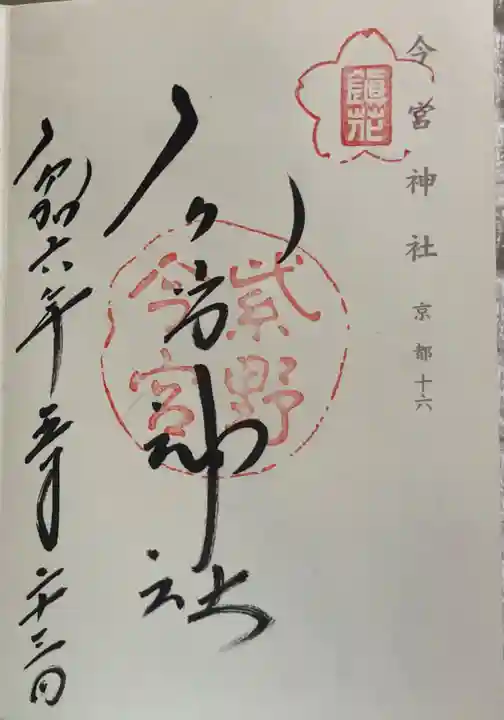 鎮花
今宮神社 京都十六
紫野
今宮
今宮神社
令和六年五月二十三日